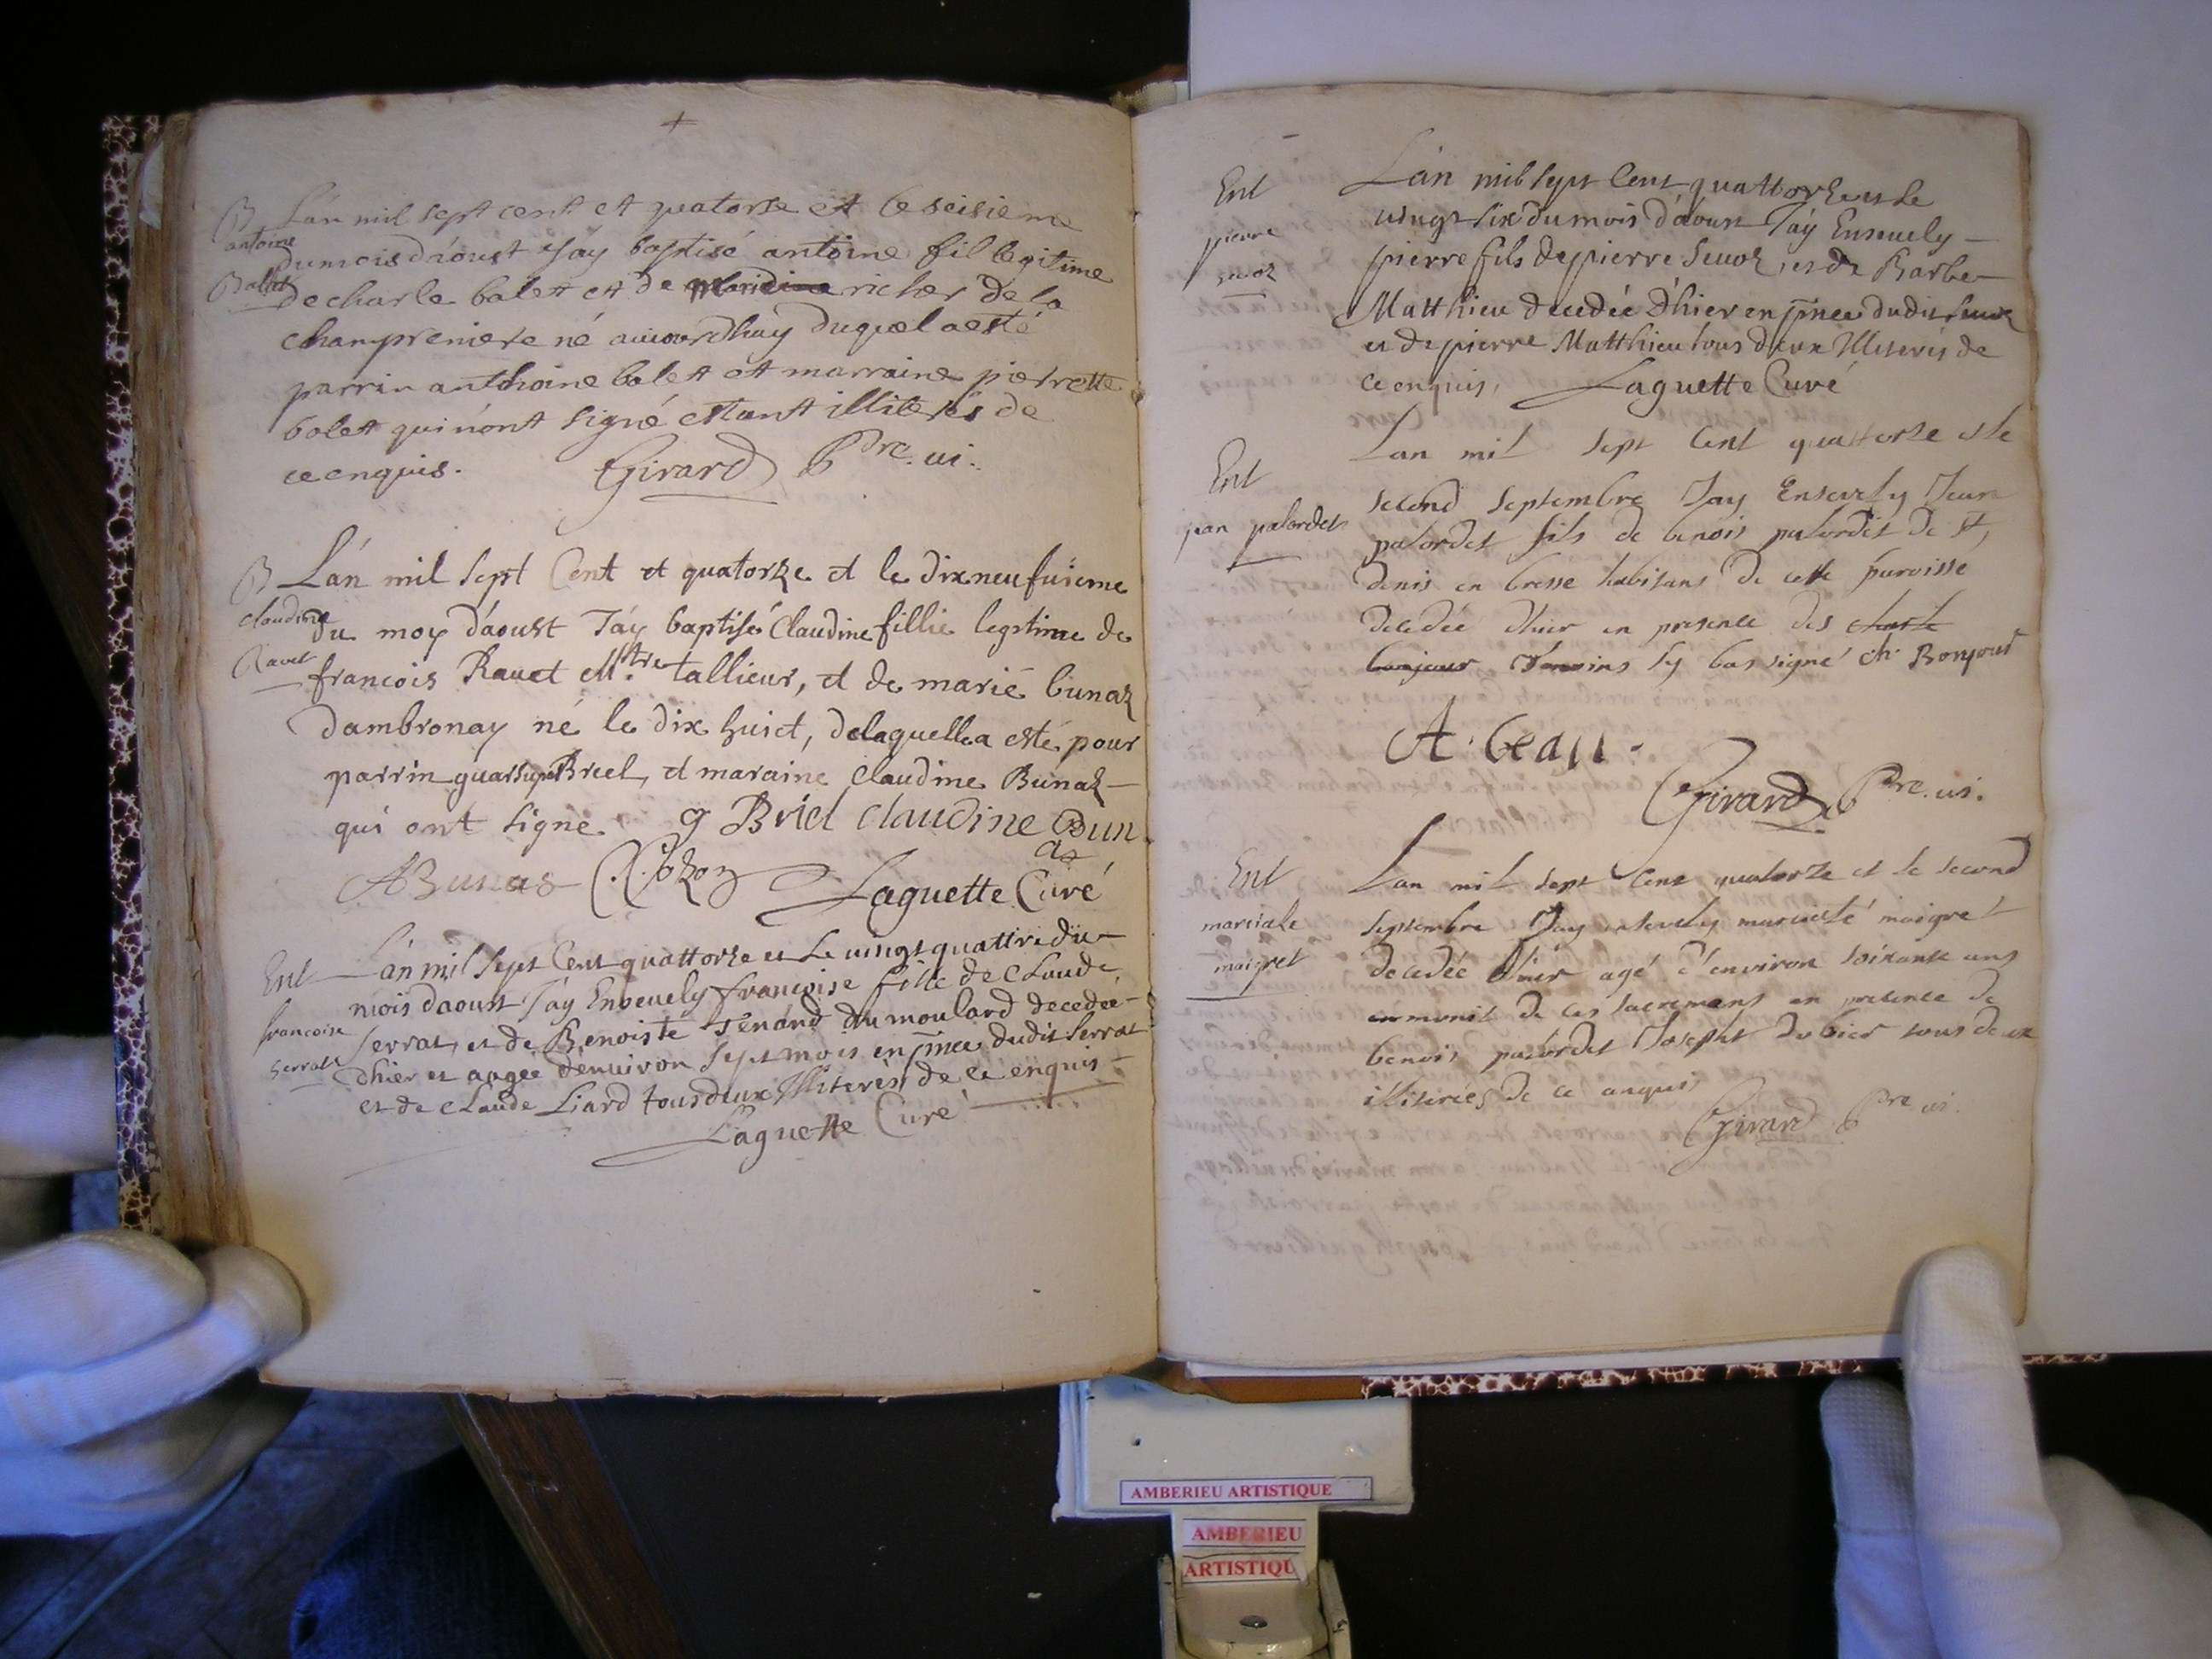 +
B
antoine
Ballet
L'an mil sept cent et quatorse et le seisieme
du mois d'aoust j'ay baptisé antoine fil legitime
de charle balet et de richer de la
champreniere né auiourdhuy duquel a esté
parrin anthoine balet et marraine pierrette
balet qui n'ont signé estant illiterés de
ce enquis. Girard Pre. vi.
B
claudine
Ravet
L'an mil sept Cent et quatorze et le dixneufuieme
du moy d'aoust J'ay baptisé Claudine fillie legitime de
francois Rauet Mtre tallieur, et de marie bunaz
dambronay né le dix huict, de laquelle a esté pour
parrin Briel, et maraine Claudine Bunaz
qui ont signe. g Briel claudine Bun
az
ABunas Laguette Curé
Ent
francoise
Serrat
L'an mil sept Cent quattorze et Le uingt quattre du
mois daoust J'ay Enseuely françoise fille de Claude
Serrat, et de Benoiste Tenand du moulard decedeé
dhier et aagee denuiron sept mois en pnce dudit Serrat
et de claude Liard tous deux Illiterés de ce enquis
Laguette Curé
Ent
pierre
seuoz
L'an mil sept Cent quattorze et le
uingt six du mois d'aoust J'ay Enseuely
pierre fils de pierre Seuoz, et de Barbe
Matthieu decedée d'hier en pnce dudit seuoz
et de pierre Matthieu tous deux Illiterés de
ce enquis, Laguette Curé
Ent
jean palordet
Lan mil sept Cent quattorze et le
second Septembre Jay Ensevely Jean
palordet fils de benois palordet de st
denis en bresse habitans de cette paroisse
decedée d'hier en presence des charle
bonjour temoins sy bas signé ch. Bonjour
A. beau.
Girard Pre. vi.
Ent
marciale
maigret
Lan mil sept Cent quatorze et le second
septembre Jay ensevely marciale maigret
decedée d'hier agé d'environ soixante ans
munit de ces sacremans en presence de
benois palordet Joseph dubier tous deux
illiterées de ce anquis
Girard Pre vi.
AMBERIEU ARTISTIQUE
AMBERIEU
ARTISTIQU